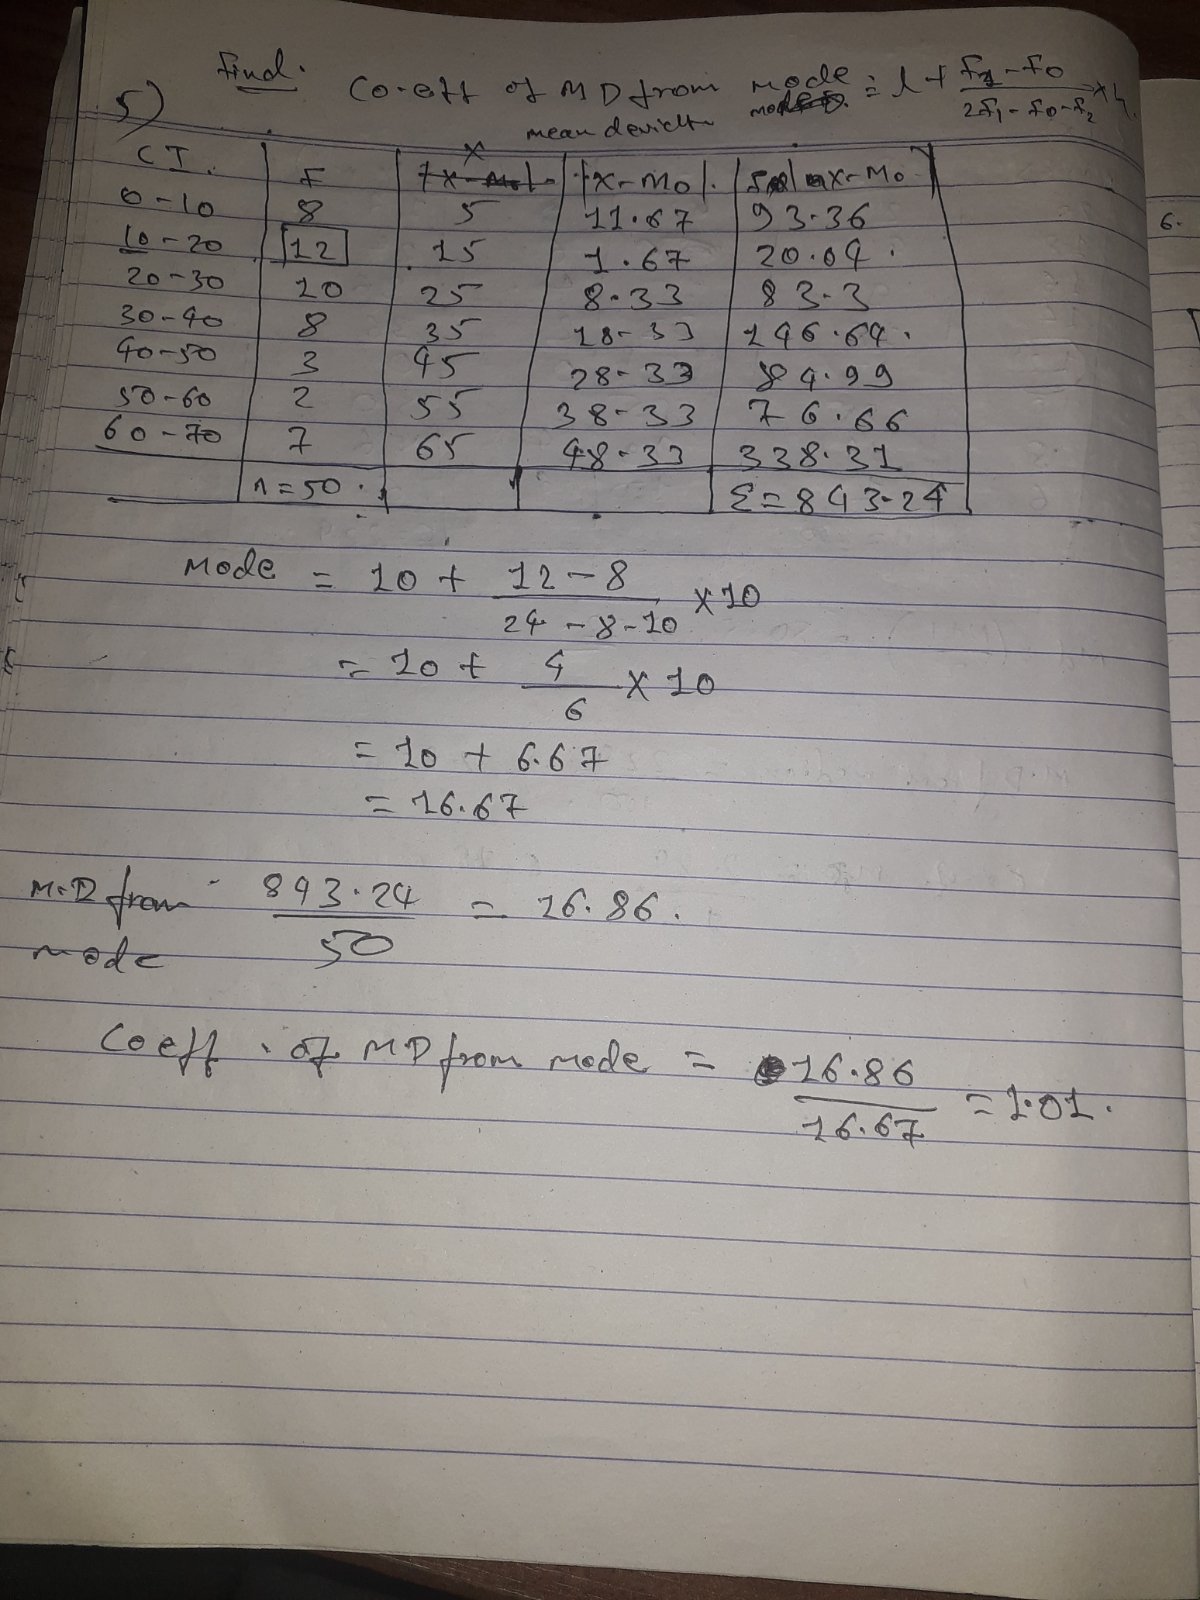 Find.
5) Co.eff of MD from mode = l + F1 - F0 / 2F1 - F0 - F2 × h.
mean deviat
CI. F X |X-Mo|. F |X-Mo|
0-10 8 5 11.67 93.36
10-20 12 15 1.67 20.04.
20-30 10 25 8.33 83.3
30-40 8 35 18-33 146.64.
40-50 3 45 28-33 84.99
50-60 2 55 38-33 76.66
60-70 7 65 48-33 338.31
n=50. Σ=843.24
Mode = 10 + 12-8 / 24-8-10 × 10
= 10 + 4 / 6 × 10
= 10 + 6.67
= 16.67
M.D from mode 843.24 / 50 = 16.86.
Coeff. of MD from mode = 16.86 / 16.67 = 1.01.
6.